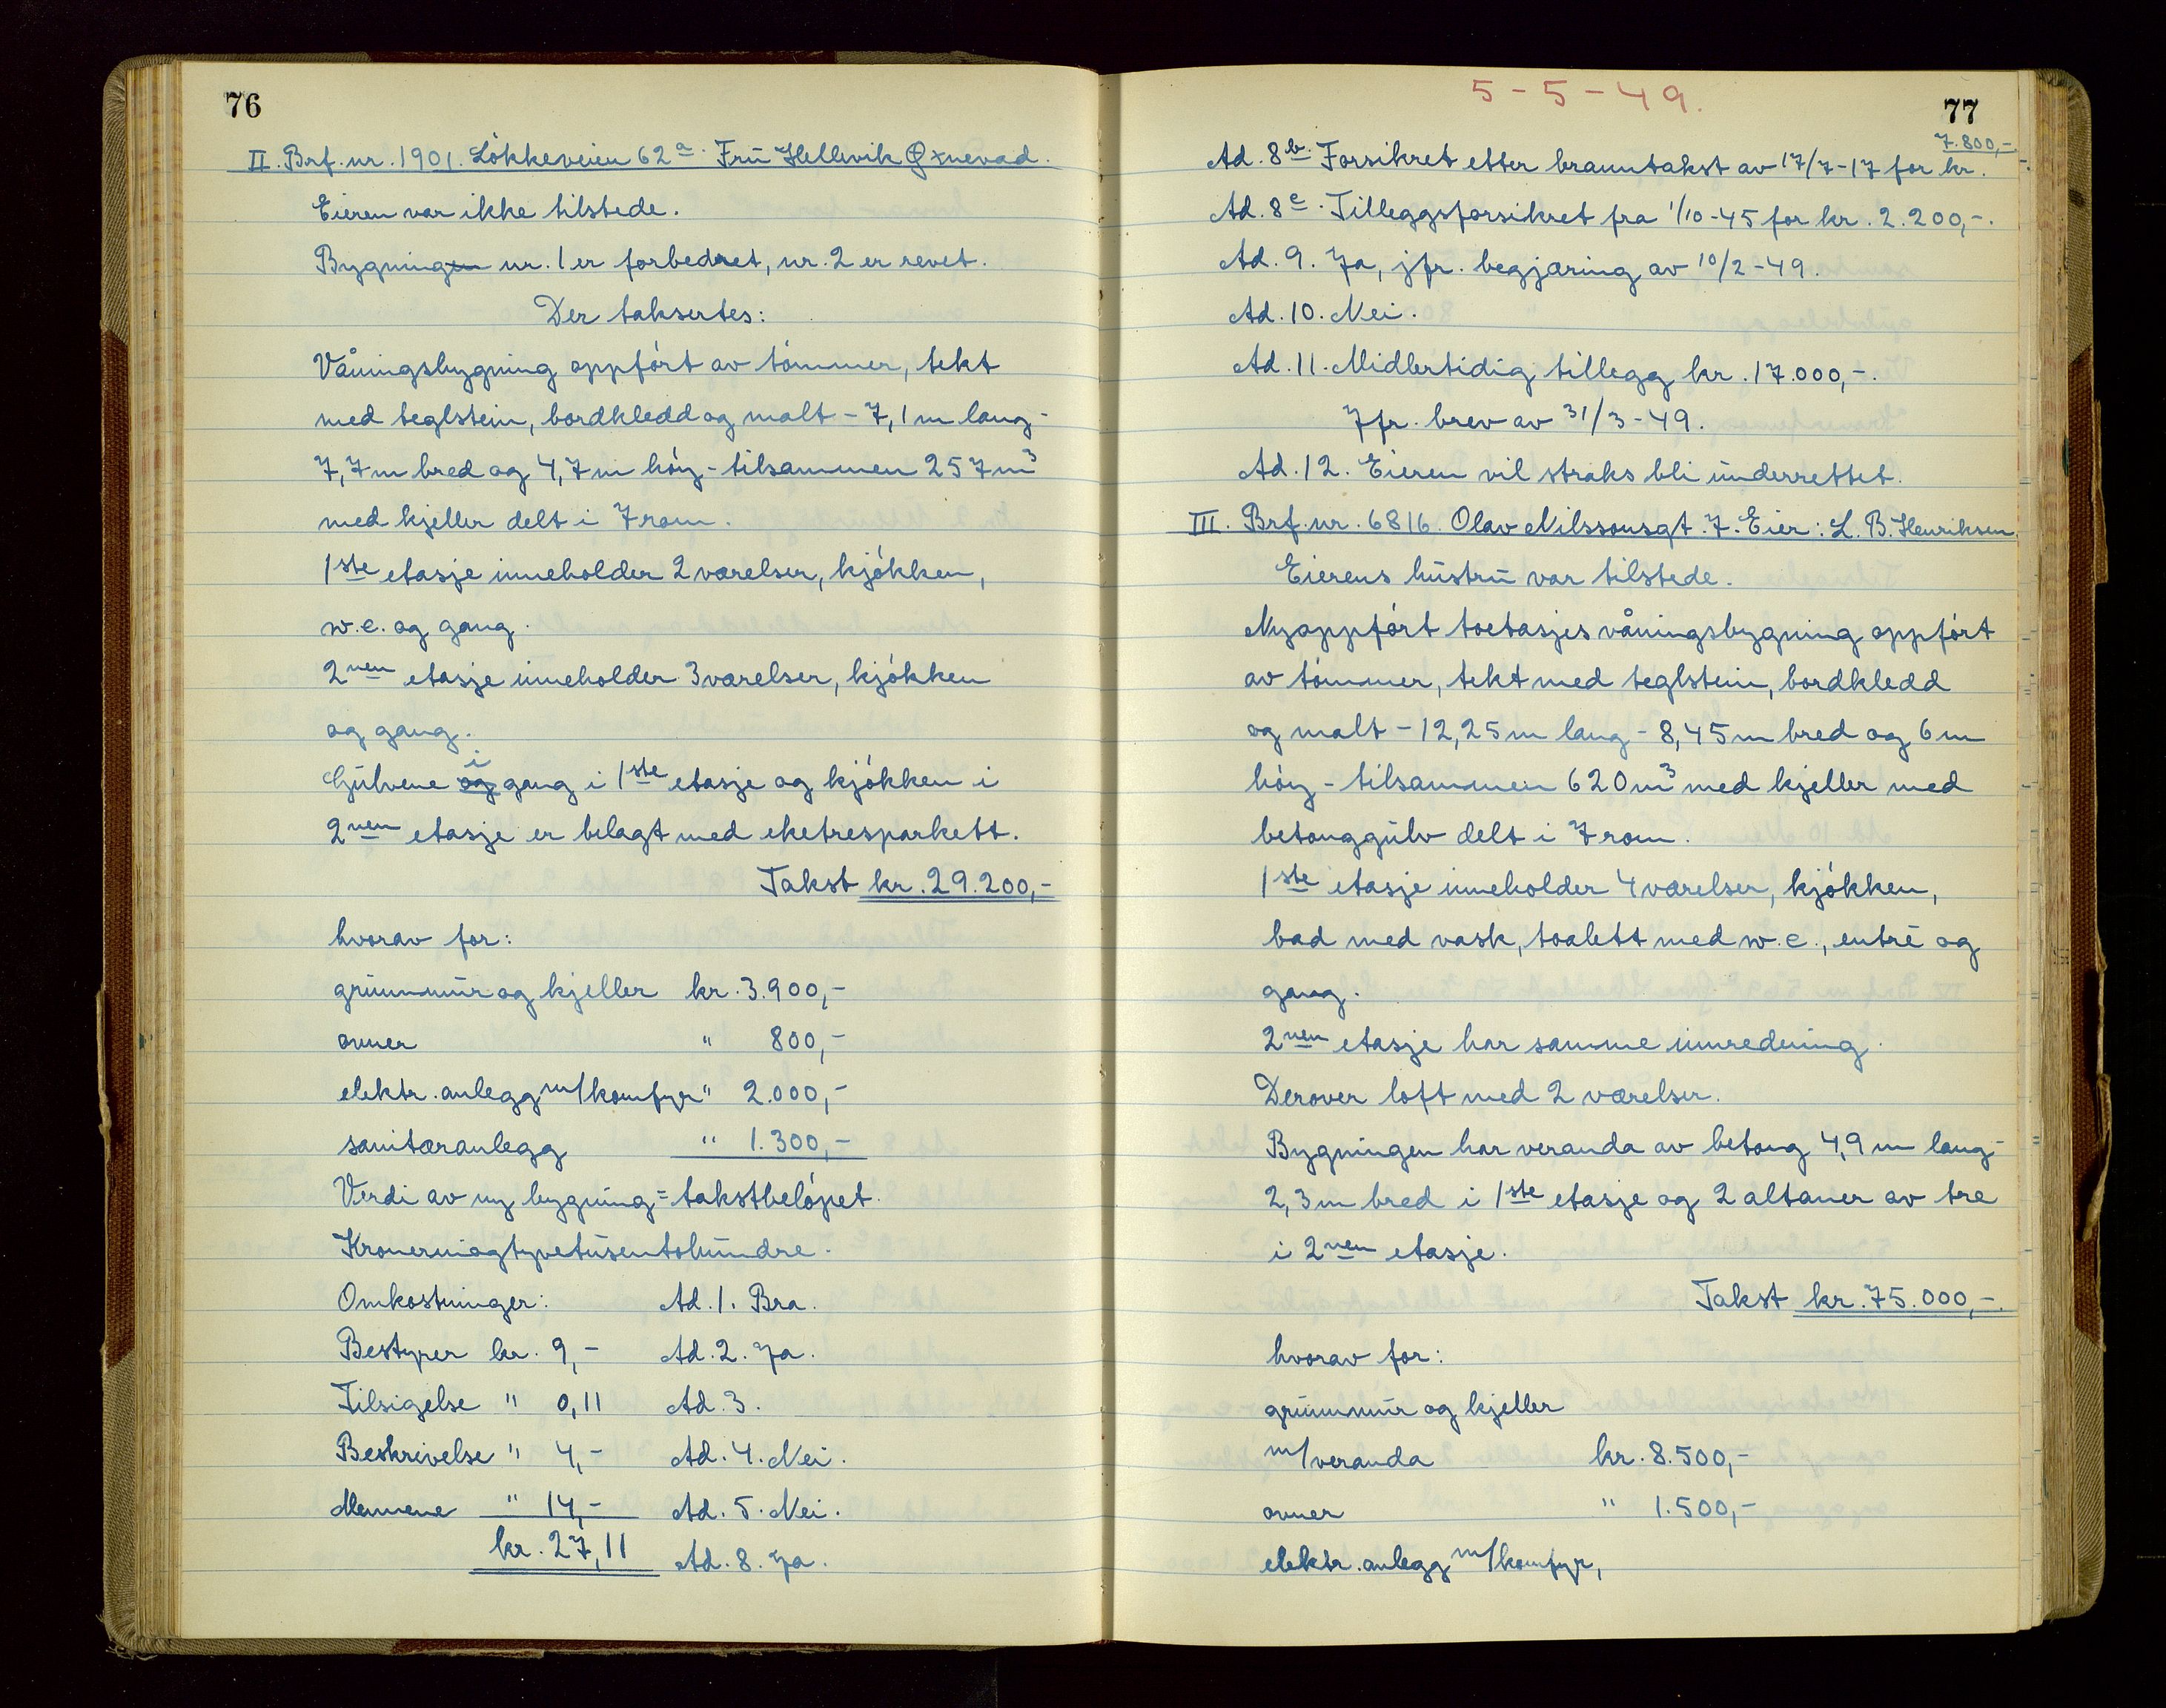 76
II. Brf. nr. 1901. Løkkeveien 62a. Frü Hellevik Øxnevad.
Eieren var ikke tilstede.
Bygningen nr. 1 er forbedret, nr. 2 er revet.
Der taksertes:
Våningsbygning oppført av tømmer, tekt
med teglstein, bordkledd og malt - 7,1 m lang -
7,7 m bred og 4,7 m høy - tilsammen 257 m³
med kjeller delt i 7 rom.
1ste etasje inneholder 2 værelser, kjøkken,
w.c. og gang.
2nen etasje inneholder 3 værelser, kjøkken
og gang.
Gulvene og i gang i 1ste etasje og kjøkken i
2nen etasje er belagt med eketresparkett.
Takst kr. 29.200,-
hvorav for:
grunnmur og kjeller kr. 3.900,-
ovner " 800,-
elektr. anlegg m/komfyr " 2.000,-
sanitæranlegg " 1.300,-
Verdi av ny bygning = takstbeløpet.
Kronerniogtyvetusentohundre.
Omkostninger: Ad. 1. Bra.
Bestyrer kr. 9,- Ad. 2. Ja.
Tilsigelse " 0,11 Ad. 3.
Beskrivelse " 4,- Ad. 4. Nei.
Mennene " 14,- Ad. 5. Nei.
kr. 27,11 Ad. 8. Ja.
5-5-49.
77
7.800,-
Ad. 8b. Forsikret etter branntakst av 17/7-17 for kr.
Ad. 8c. Tilleggsforsikret fra 1/10-45 for kr. 2.200,-.
Ad. 9. Ja, jfr. begjæring av 10/2-49.
Ad. 10. Nei.
Ad. 11. Midlertidig tillegg kr. 17.000,-.
Jfr. brev av 31/3-49.
Ad. 12. Eieren vil straks bli underrettet.
III. Brf. nr. 6816. Olav Nilssonsgt. 7. Eier: L. B. Henriksen.
Eierens hustru var tilstede.
Nyoppført toetasjes våningsbygning oppført
av tømmer, tekt med teglstein, bordkledd
og malt - 12,25 m lang - 8,45 m bred og 6 m
høy - tilsammen 620 m³ med kjeller med
betonggulv delt i 7 rom.
1ste etasje inneholder 4 værelser, kjøkken,
bad med vask, toalett med w.c., entré og
gang.
2nen etasje har samme innredning.
Derover loft med 2 værelser.
Bygningen har veranda av betong 4,9 m lang -
2,3 m bred i 1ste etasje og 2 altaner av tre
i 2nen etasje.
Takst kr. 75.000,-.
hvorav for:
grunnmur og kjeller
m/veranda kr. 8.500,-
ovner " 1.500,-
elektr. anlegg m/komfyr,